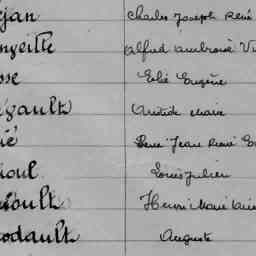 ejan Charles Joseph René
ngeille Alfred Ambroise Vi
sse Elie Eugène
gault Aristide Marie
ié René Jean Marie E
ioul Louis Julien
ioult Henri Marie
odault Auguste